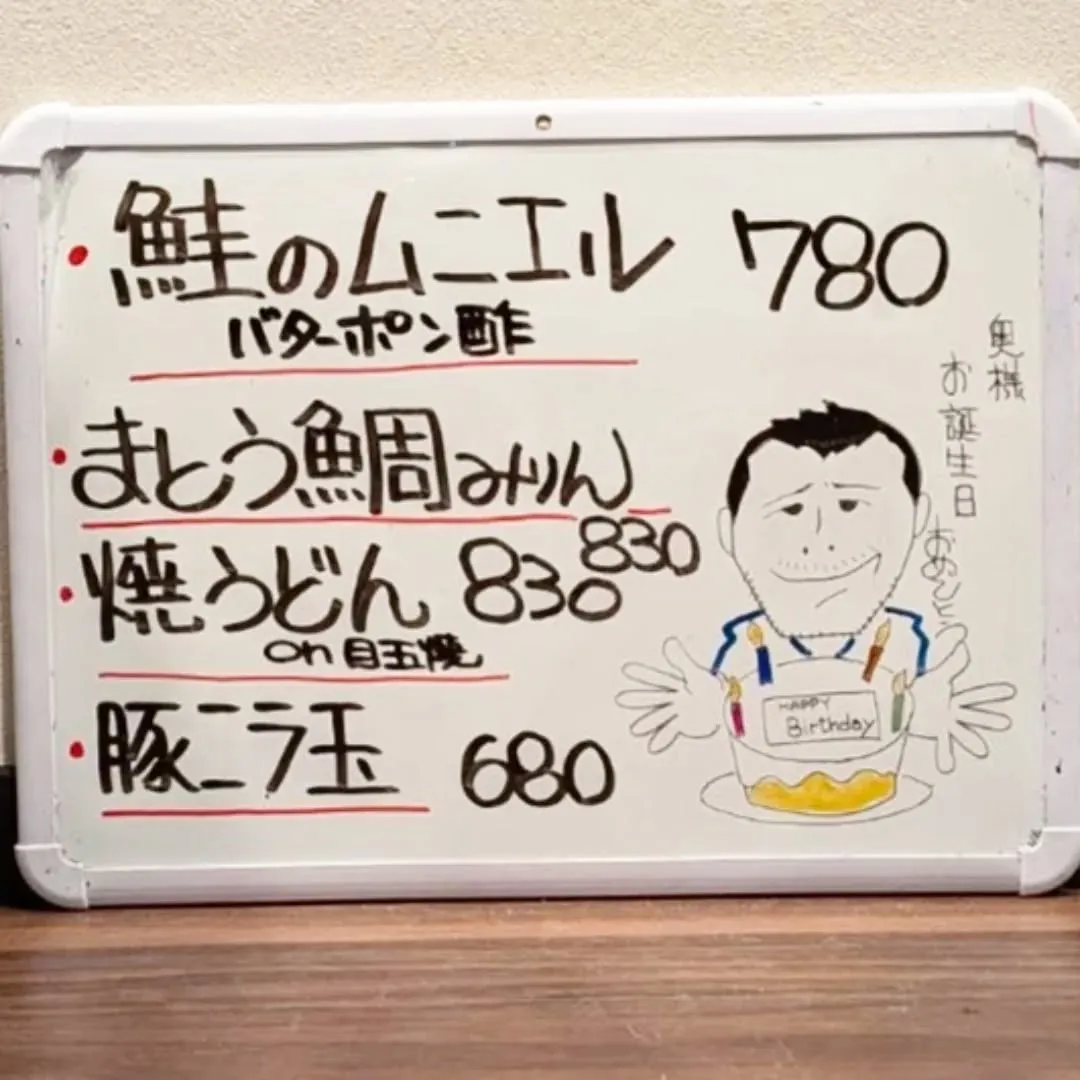 ・鮭のムニエル 780
バターポン酢
・まとう鯛みりん
830
・焼うどん 830
on 目玉焼
・豚ニラ玉 680
奥様
お誕生日
おめでとう
HAPPY
Birthday